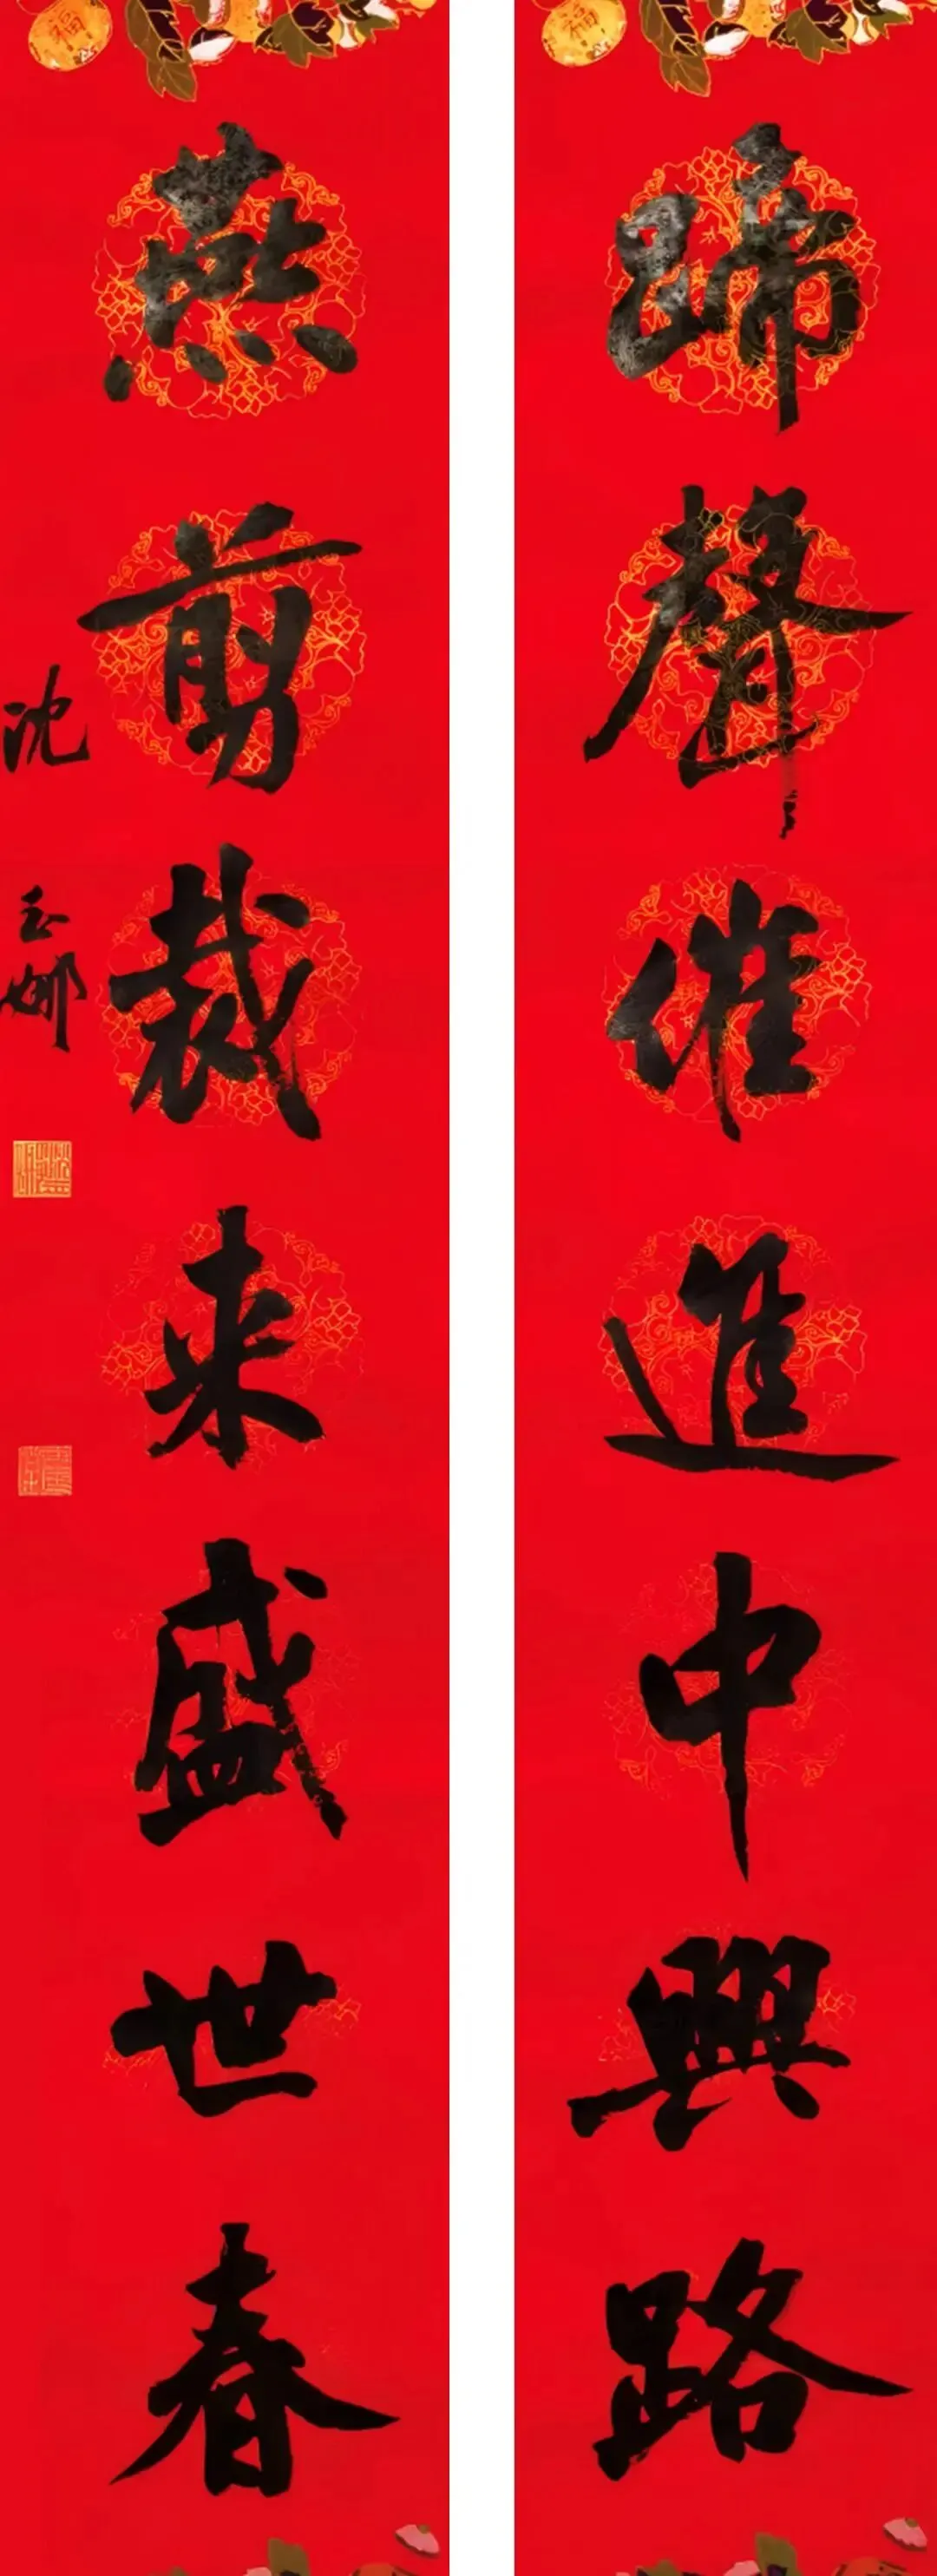 蹄聲催進中興路
燕剪裁来盛世春
沈玉娜
福
福